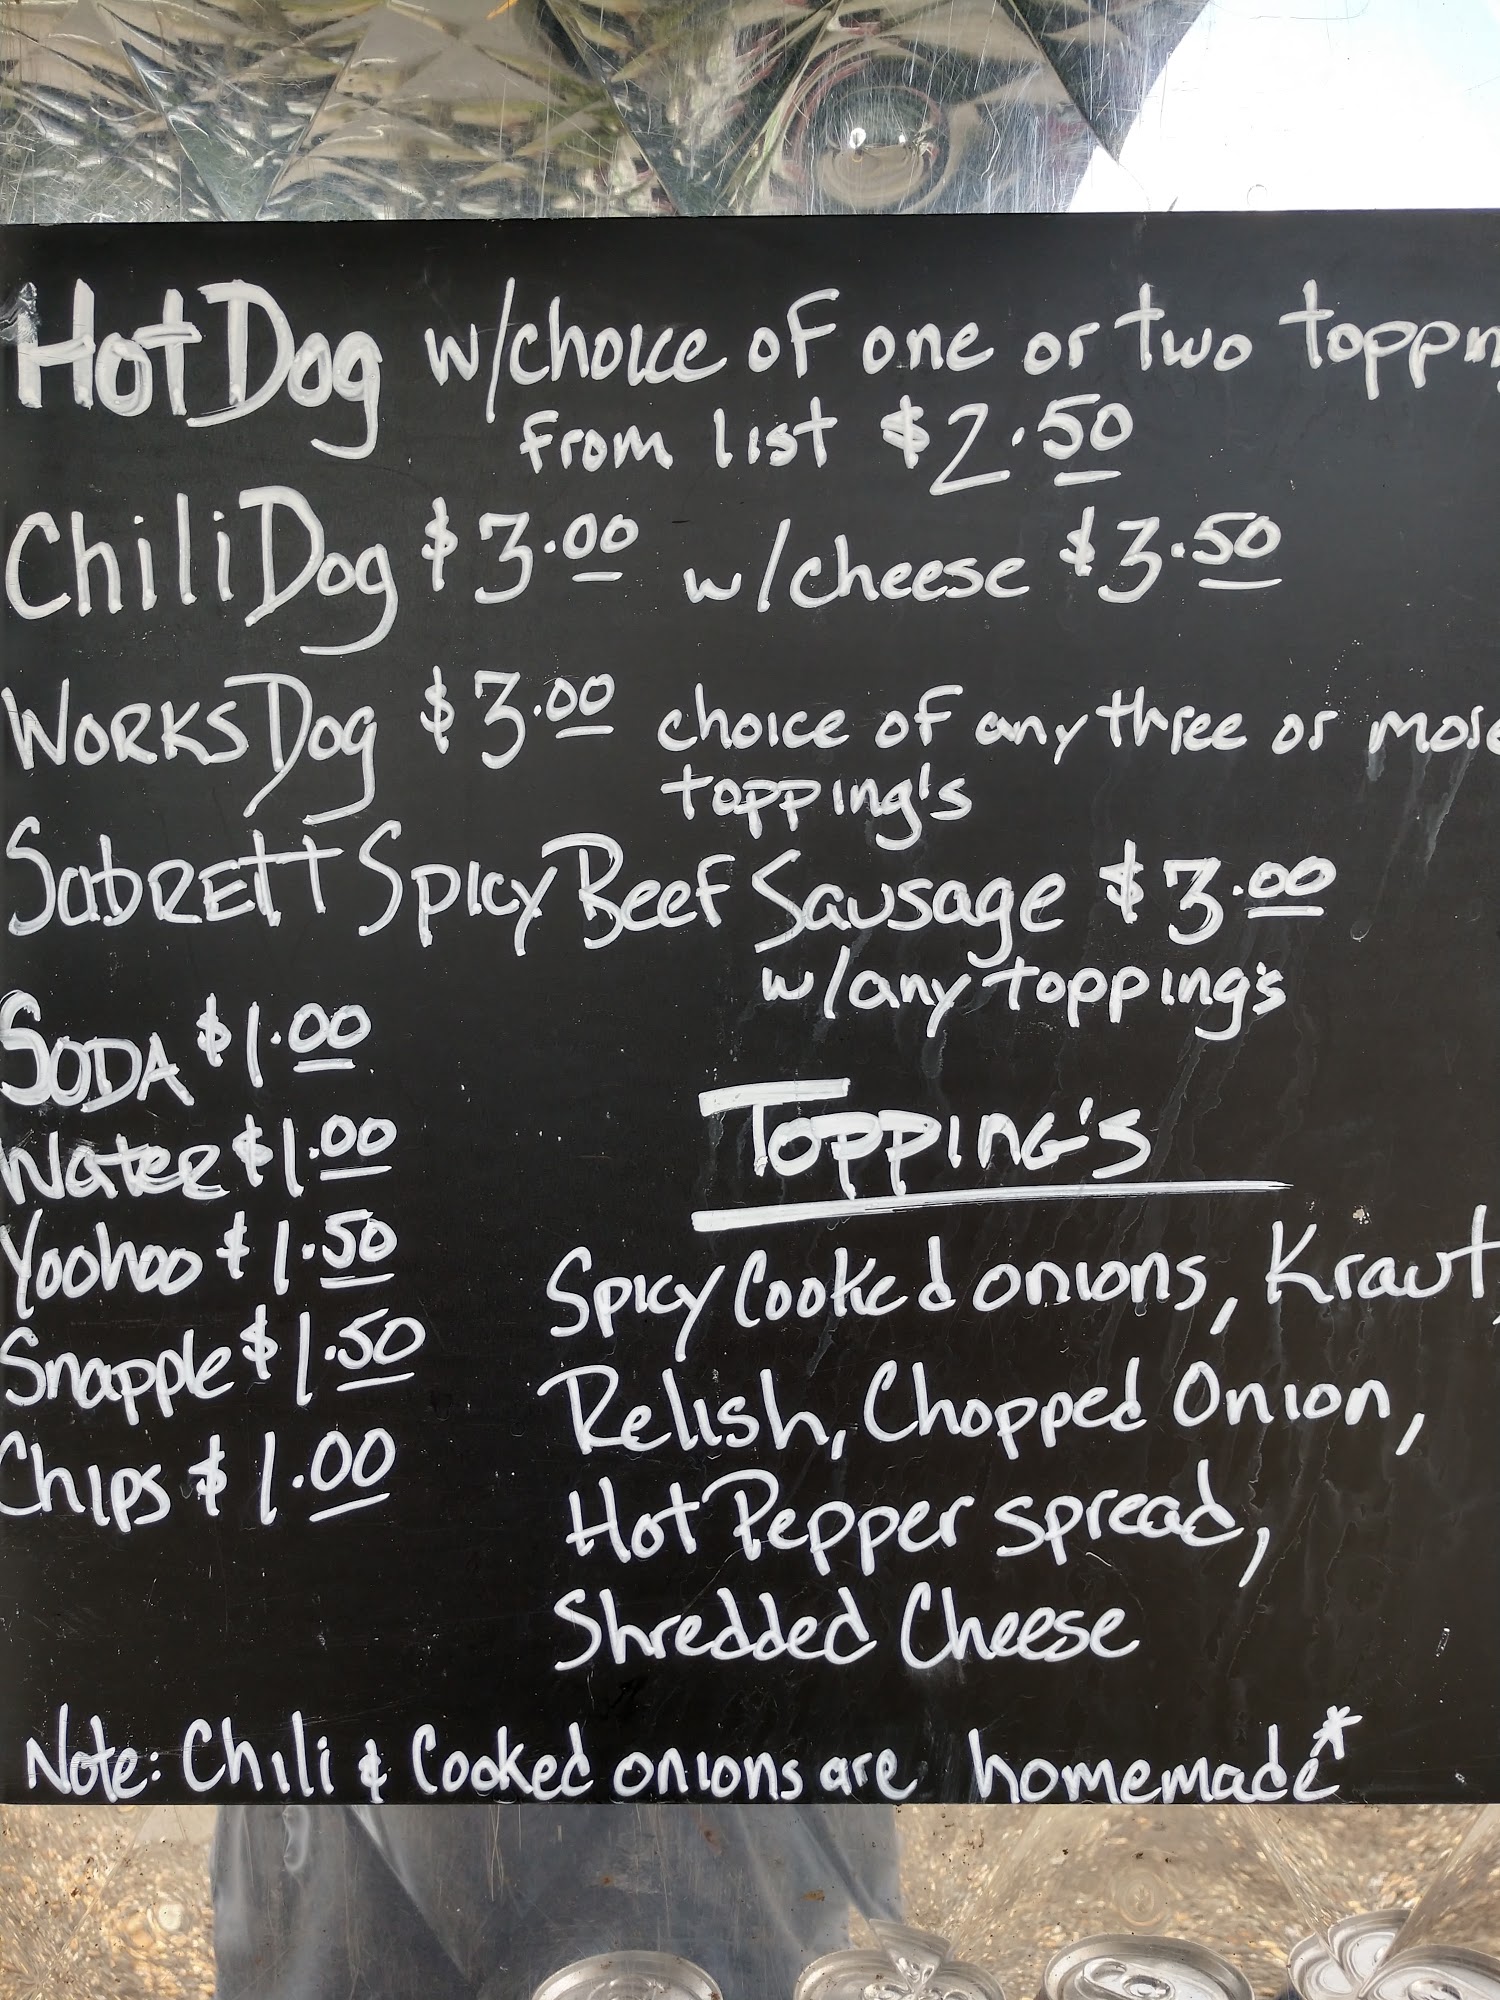 Hot Dog w/choice of one or two toppin
from list $2.50
Chili Dog $3.00 w/cheese $3.50
WORKS Dog $3.00 choice of any three or more
topping's
SabRETT Spicy Beef Sausage $3.00
w/any topping's
SODA $1.00
Water $1.00
Yoohoo $1.50
Snapple $1.50
Chips $1.00
TOPPING'S
Spicy Cooked onions, Kraut,
Relish, Chopped Onion,
Hot Pepper spread,
Shredded Cheese
Note: Chili & Cooked onions are homemade*